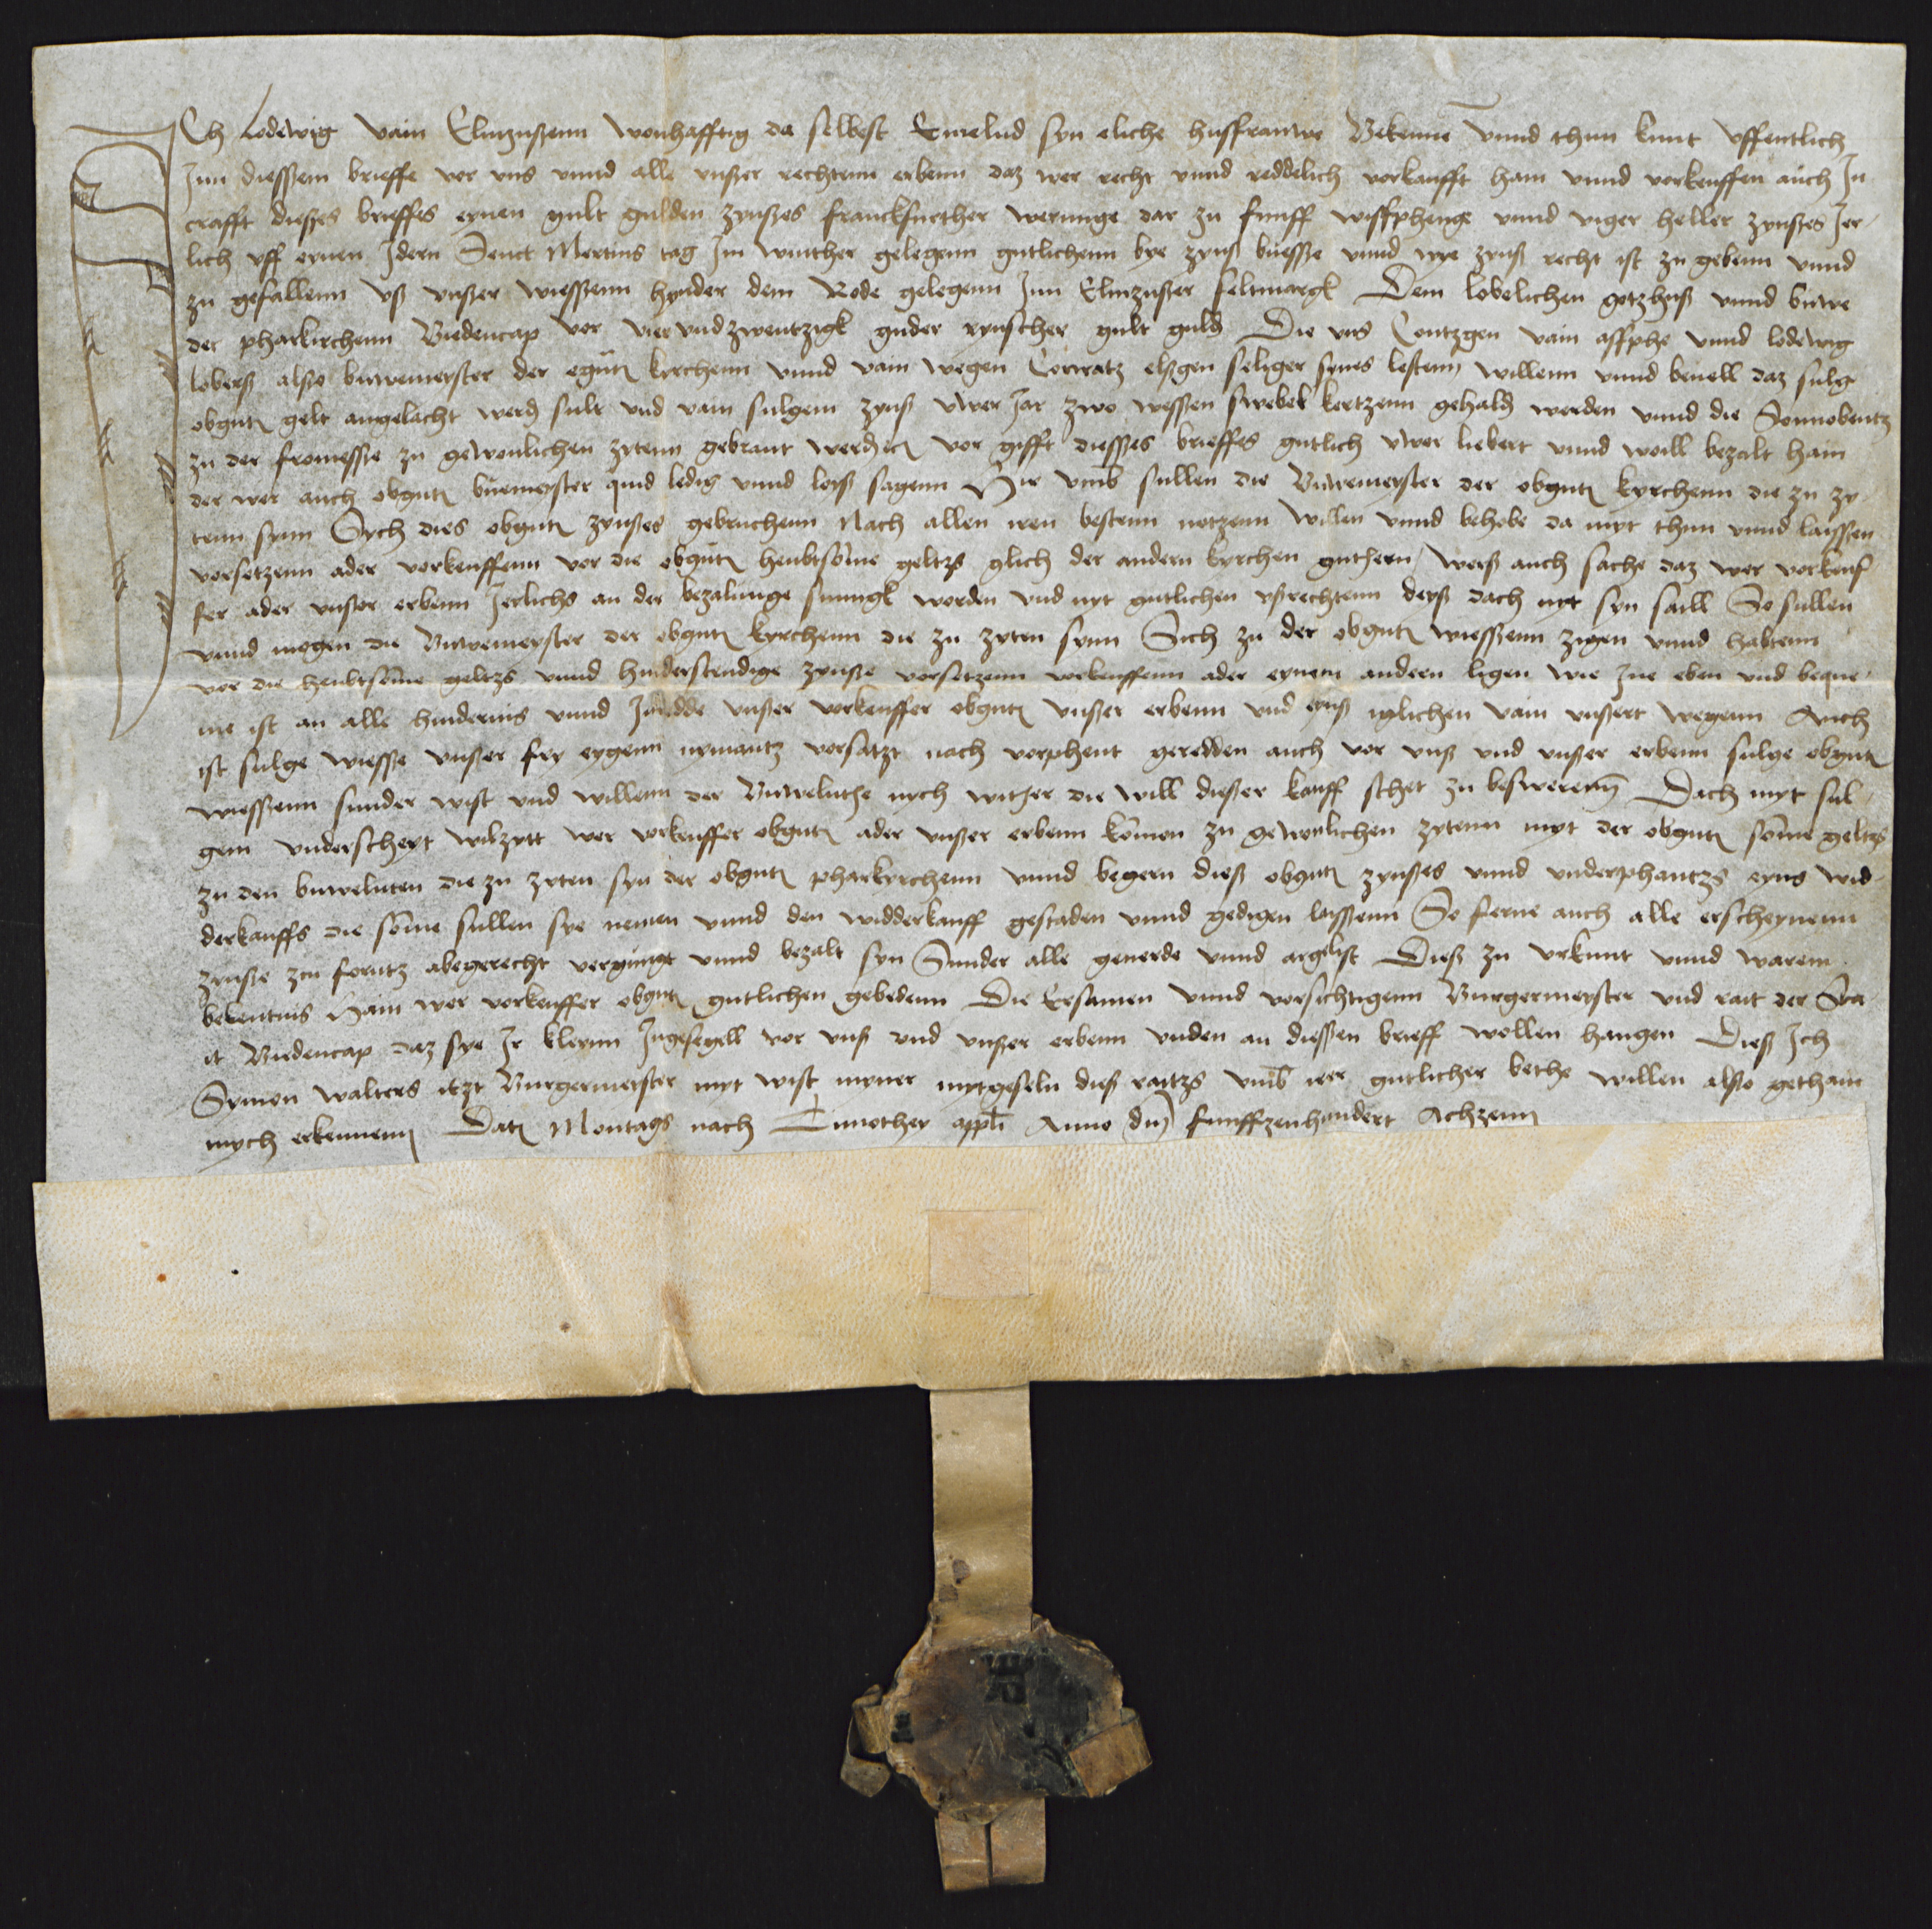 Ich Lodewig vain Elmzußenn wonhafftig da selbest Emelud syn eliche hußfrauwe Bekenne vnnd thun kunt vffentlich
Inn diessem brieffe vor vns vnnd alle vnßer rechtenn erbenn daz wer recht vnnd reddelich vorkaufft hain vnnd vorkeuffen auch In
crafft dießes brieffes eynen gult gulden zynßes franckfurther werunge dar zu funff wißphenge vnnd viger heller zynßes Jer-
lich vff eynen Idern Senct Mertins tag Im winther gelegenn gutlichenn bye zynß buesse vnnd wye zynß recht ist zu gebenn vnnd
zu gefallenn vß vnßer wiessenn hynder dem Rode gelegenn Inn Elmzußer feltmargk Dem lobelichen gotzhuß vnnd buwe
der pharkirchenn Biedencap vor vier vnd zwentzigk guder rynscher gult guld Die vns Contzgen vain assphe vnnd lodewig
loberß alßo buwemeyster der egnten kyrchenn vnnd vain wegen Conratz elßgen seliger synes lestenn willenn vnnd beuell daz sulg
obgnten gelt angelacht werden sult vnd vain sulgem zynß vber Jar zwo wessen swebel kertzenn gehalden werden vnnd die Sonnobentz
zu der fromesse zu gewonlichen zytenn gebrant werden vor gifft diesses brieffes gutlich vber liebert vnnd woill bezalt hain
der wer auch obgnten buemeyster quid ledig vnnd loiß sagenn Hir vmb sullen die Buwemeyster der obgnten kyrchenn die zu zy-
tenn synn Sych dies obgnten zynßes gebruchenn Nach allen iren bestenn notzenn willen vnnd behobe da myt thun vnnd laissen
vorsetzenn ader vorkeuffenn vor die obgnten heubtsome geltzs glich der andern kyrchen guthern, werß auch sache daz wer vorkeuf
fer ader vnßer erbenn Jerlichs an der bezalunge sumigk worden vnd nyt gutlichen vßrechtenn deyß dach nyt syn saill So sullen
vnnd mogen die Buwemeyster der obgnten kyrchenn die zu zyten synn Sich zu der obgnten wiessenn zigen vnnd haltenn
vor die heubtsome geltzs vnnd hinderstendige zynße vorsetzenn vorkeuffenn ader eynem andern ligen wie Jne eben vnd beque-
me ist an alle hindernis vnnd Inredde vnßer vorkeuffer obgnten vnßer erbenn vnd eynß iglichen vain vnßert wegenn Auch
ist sulge wiesse vnßer fry eygenn nymantz vorsatzt nach vorphent geredden auch vor vnß vnd vnßer erbenn sulge obgnten
wiessenn sunder wist vnd willenn der Buweluthe nych wither die will dießer kauff schet zu besweren Dach myt sul-
gem vnderscheyt wilzytt wer vorkeuffer obgnten ader vnßer erbenn komen zu gewonlichen zytenn myt der obgnten some geltzs
zu den buweluten die zu zyten syn der obgnten pharkyrchenn vnnd begern dieß obgnten zynßes vnnd vnderphantzs eyns wid-
derkauffs die some sullen sye nemen vnnd den widderkauff gestaden vnnd gedigen laissenn So ferne auch alle erscheynenn
zynße zcu forntz abegerecht vergnugt vnnd bezalt syn Sunder alle geuerde vnnd argelist Dieß zu vrkunt vnnd warem
bekentnis Hain wer vorkeuffer obgnten gutlichen gebedenn Die Ersamen vnnd vorsichtigenn Burgermeyster vnd rait der Sta-
it Biedencap daz sye Ir kleynn Ingesegell vor vnß vnd vnßer erbenn vnden an diessen brieff wollen hangen Dieß Ich
Symon walters itzt Burgermeister myt wist myner mytgeseln dieß raitzs vmb irer gutlicher bethe willen alßo gethain
mych erkennenn Datum Montags nach Timothey appli Anno dni funffzenhundert Achzenn